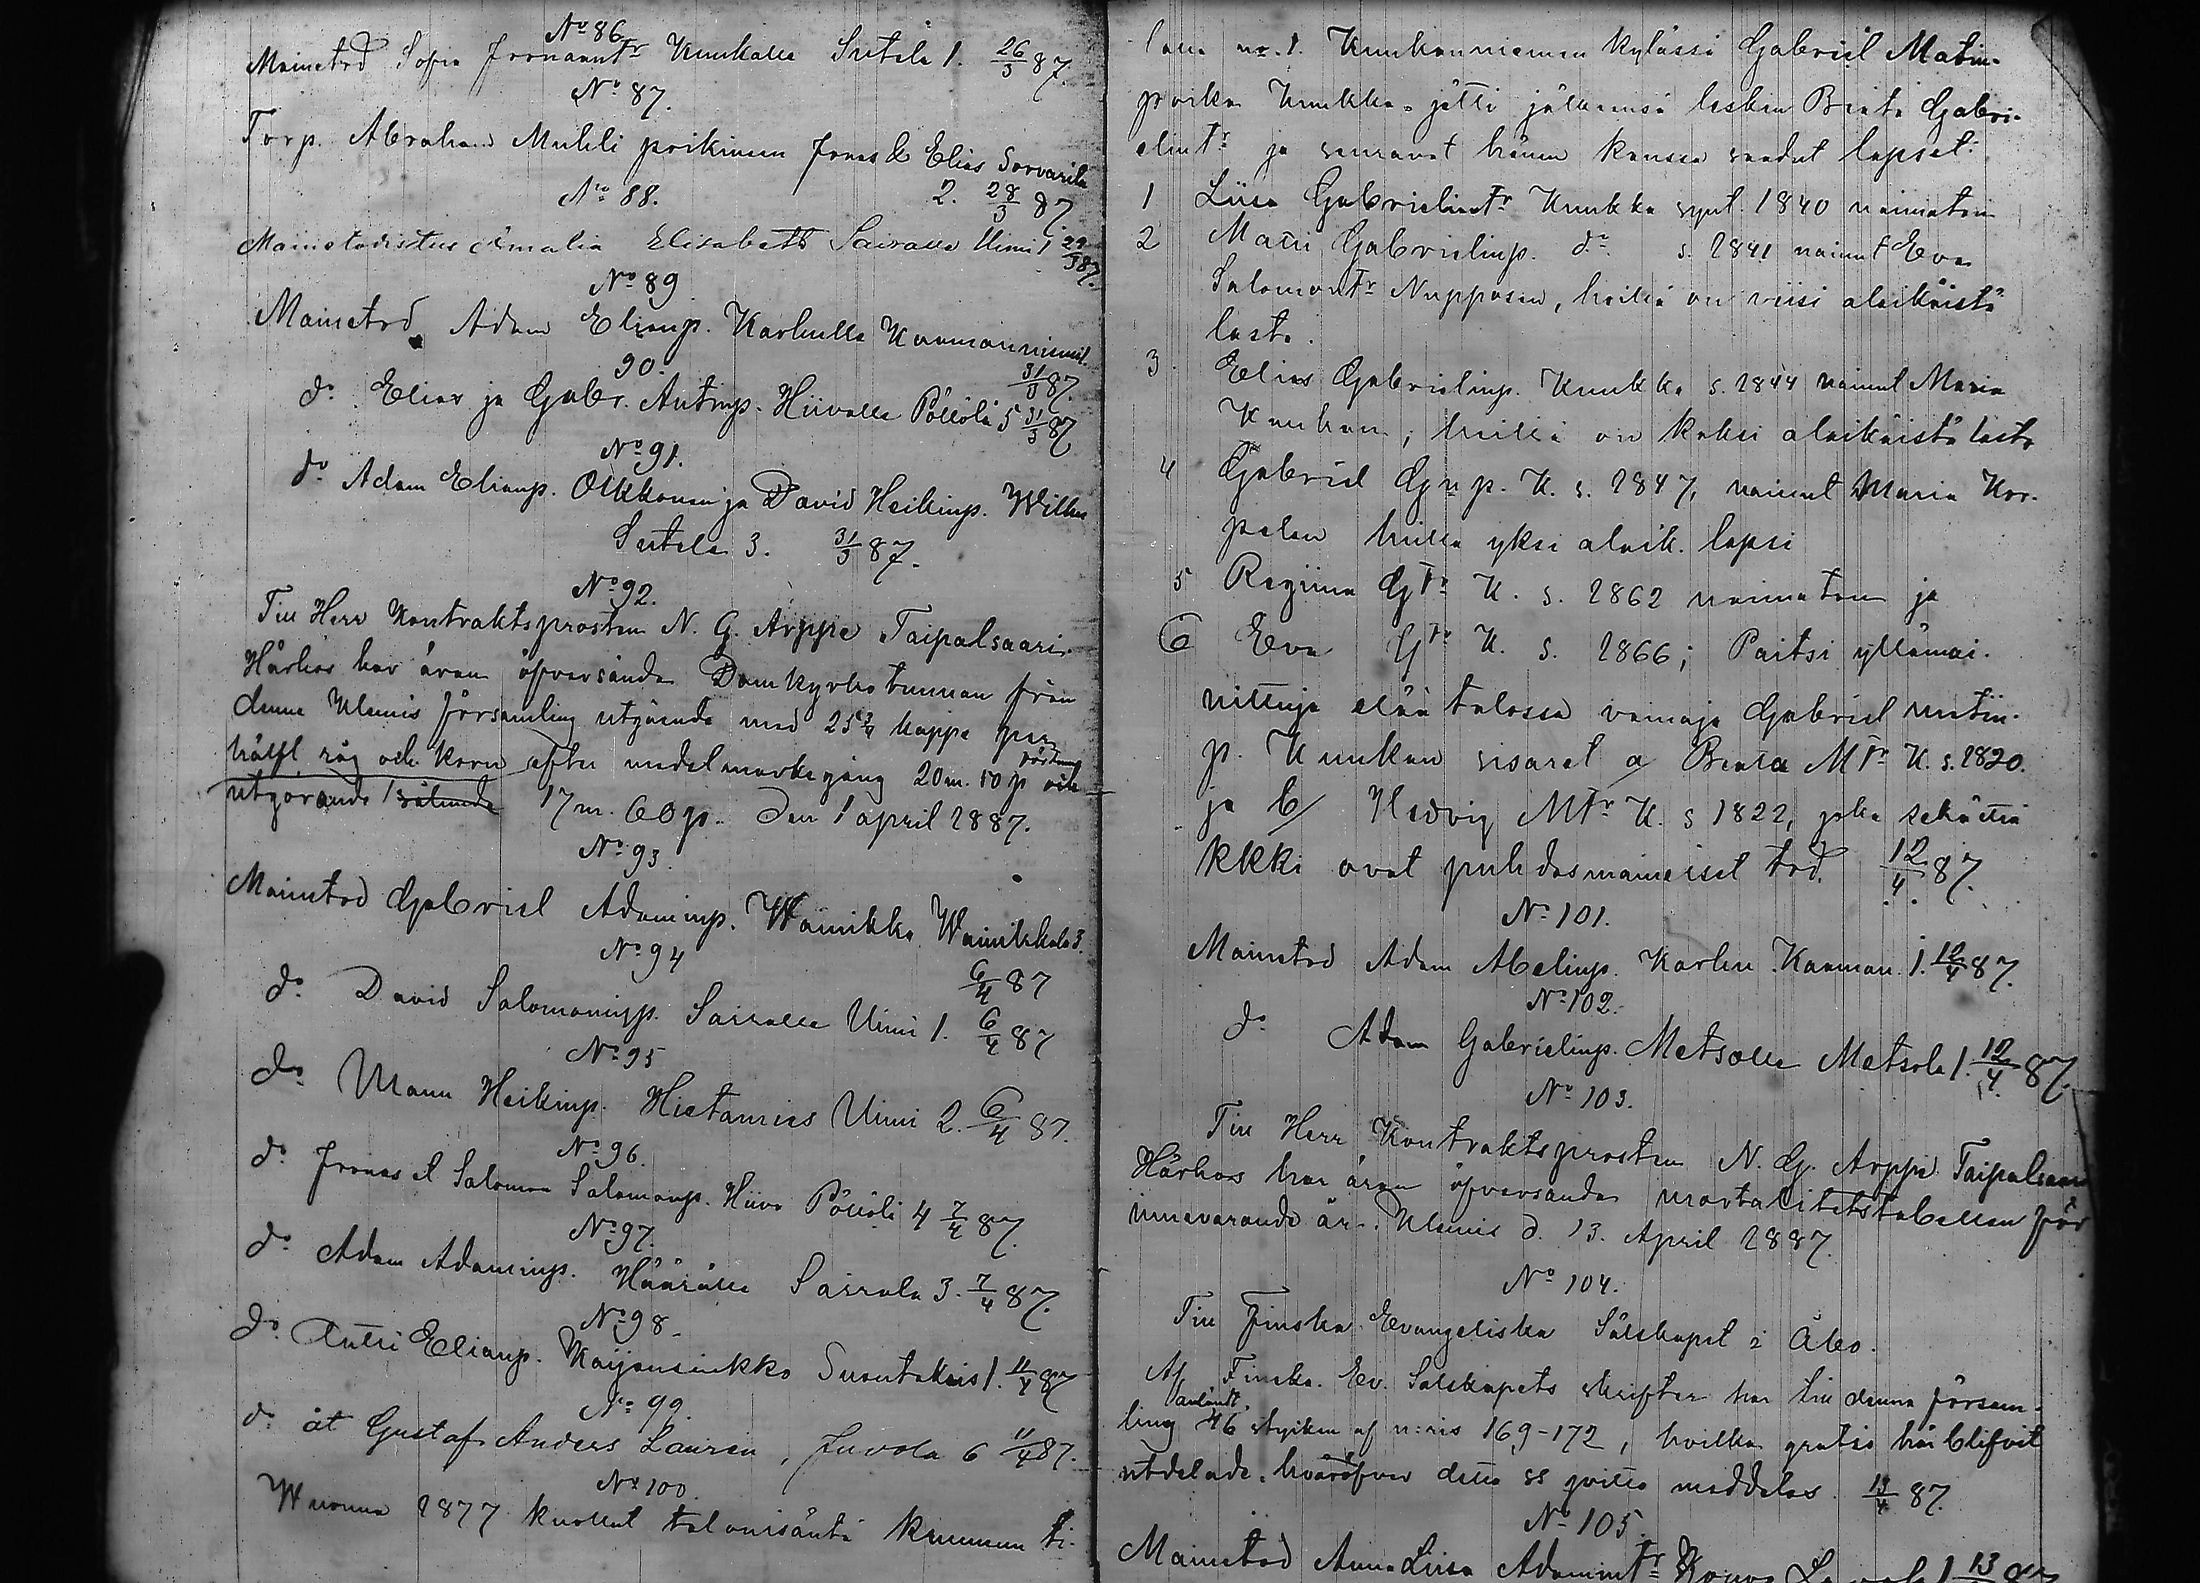 No 86.
Mainetod Sofia Joonaantr Kunkalle Sutela 1. 26/3 87.
No 87.
Torp. Abraham Muhli poikineen Jonas & Elias Sorvarila
2. 28/3 87.
No 88.
Mainetodistus Amalia Elisabeth Sairalle Uimi 1 29/3 87.
No 89.
Mainetod Adam Eliasp. Karhulle Kaamanniemi.
31/3 87.
90.
do Elias ja Gabr. Antinp. Hiivalle Pöllölä 5 31/3 87
No 91.
do Adam Eliasp. Olkkonen ja David Heikinp. Wilku
Sutela 3. 31/3 87.
No 92.
Till Herr Kontraktsprosten N. G. Arppe Taipalsaari.
Härhos har äran öfversända Domkyrkotunnan från
denna Klemis församling utgående med 25 3/4 kappe per
hälft råg och korn efter medelmarkegång 20 m. 50 p och
utgörande sålunda 17 m. 60 p. Den 1 april 1887.
No 93.
Mainetod Gabriel Adaminp. Wainikka Wainikkala 3.
6/4 87
No 94
do David Salomoninp. Sairalle Uimi 1. 6/4 87
No 95
do Mann Heikinp. Hietamies Uimi 2. 6/4 87.
No 96.
do Joonas & Salomon Salomonp. Hiiva Pöllölä 4 7/4 87.
No 97.
do Adam Adaminp. Häärälle Sairala 3. 7/4 87.
No 98.
do Antti Eliasp. Kaijansinkko Suontakais 1. 11/4 87
No 99.
do åt Gustaf Anders Lauren, Juvola 6 11/4 87.
No 100.
Wuonna 1877 kuollut talonisäntä Kunnun ti-
lalla no. 1. Kunkanniemen kylässä Gabriel Matin-
poika Kunkka jätti jälkeensä lesken Beata Gabri-
elintr ja seuraavat hänen kanssa saadut lapset:
1 Liisa Gabrielintr Kunkka synt. 1840 naimaton
2 Matti Gabrielinp. do s. 1841 nainut Eva
Salomontr Nupposen, heillä on viisi alaikäistä
lasta.
3. Elias Gabrielinp. Kunkka s. 1844 nainut Maria
Kauhan, heillä on kaksi alaikäistä lasta
4 Gabriel Gp. K. s. 1847, nainut Maria Kor-
pelan heillä yksi alaik. lapsi
5 Regiina Gtr K. s. 1862 naimaton ja
6 Eva Gtr K. s. 1866; Paitsi yllämai-
nittuja elää talossa vainaja Gabriel Matin-
p. Kunkan sisaret a/ Beata Mtr K. s. 1820.
ja b/ Hedvig Mtr K. s 1822, jotka
kkki ovat puhdasmaineiset tod. 12/4 87.
No 101.
Mainetod Adam Abelinp. Karhu Kaaman. 1. 12/4 87.
No 102.
do Adam Gabrielinp. Metsälle Metsola 1. 12/4 87.
No 103.
Till Herr Kontraktsprosten N. G. Arppe. Taipalsaari
Härhos har äran öfversända mortalitetstabellen för
innevarande år. Klemis d. 13. April 1887.
No 104.
Till Finska Evangeliska Sälskapet i Åbo.
Af Finska Ev. Sälskapets skrifter har till denna försam-
anländt
ling 46 stycken af n:ris 169-172, hvilka gratis här blifvit
utdelade. hvaröfver detta ss qvitto meddelas. 13/4 87.
No 105.
Mainetod Anna Liisa Adamintr